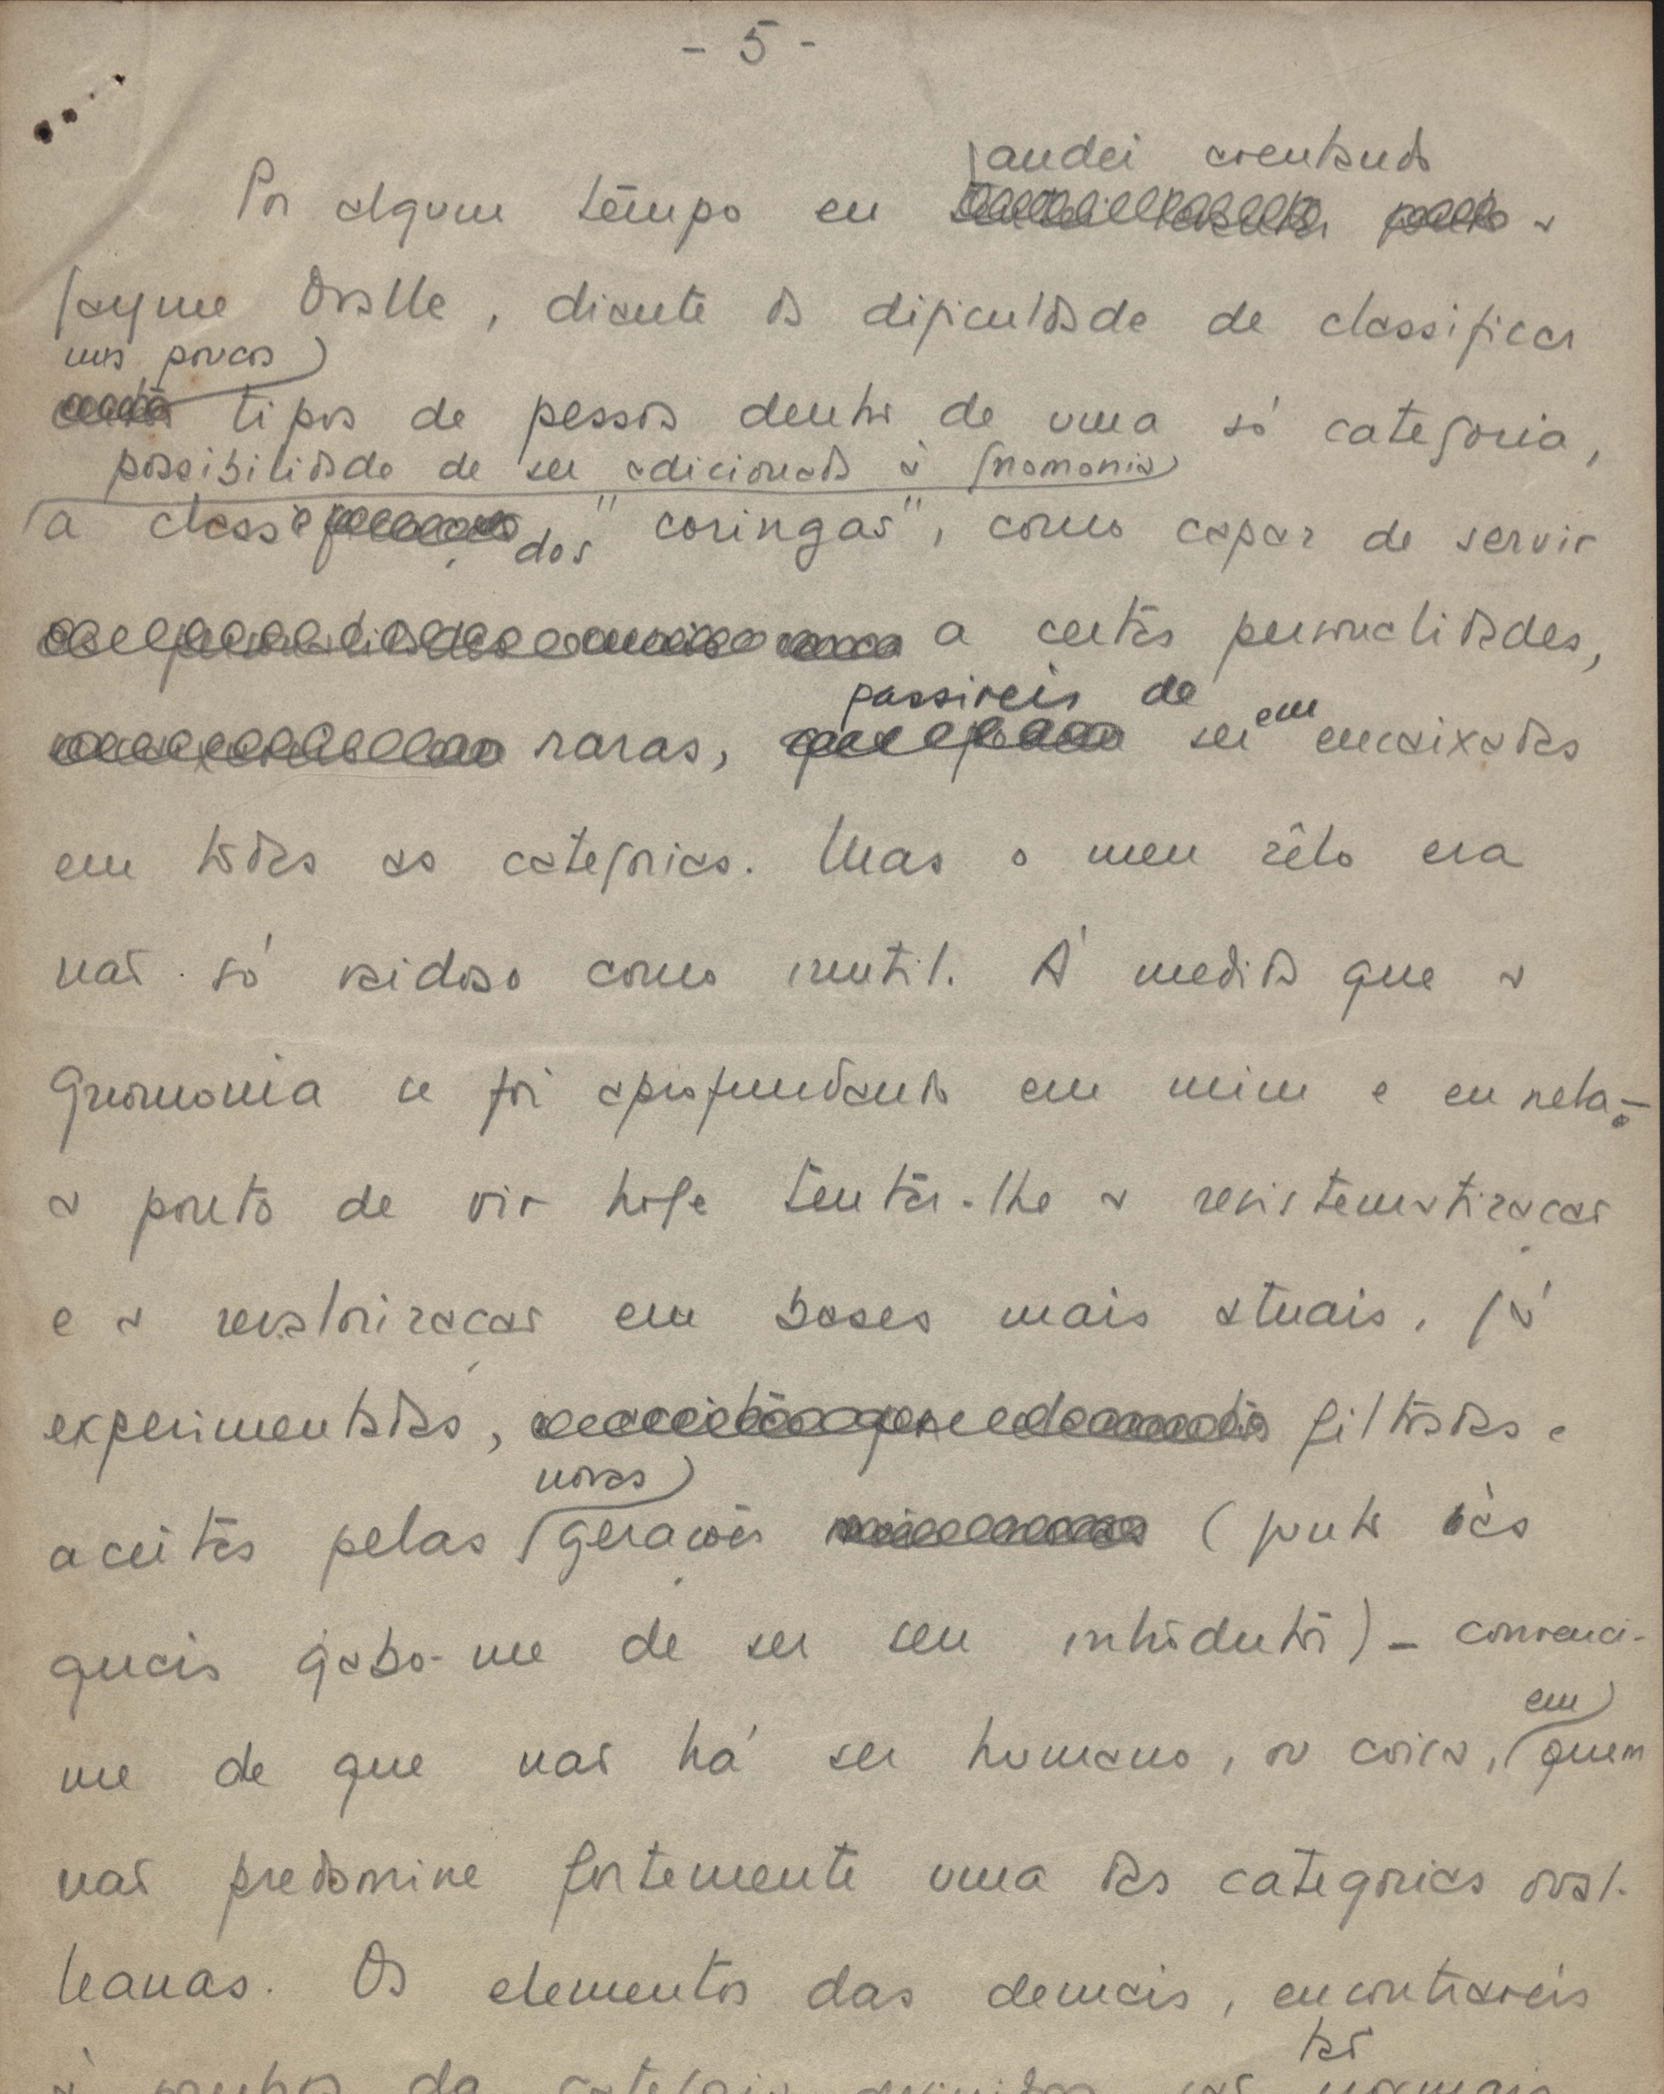 - 5 -
andei aventando
Por algum tempo eu a
Jayme Ovalle, diante da dificuldade de classificar
uns poucos
tipos de pessoa dentro de uma só categoria,
possibilidade de ser adicionada à gnomonia
a classe dos "coringas", como capaz de servir
a certas personalidades,
passiveis de
raras, serem encaixadas
em todas as categorias. Mas o meu zêlo era
não só vaidoso como inutil. À medida que a
Gnomonia se foi aprofundando em mim e eu nela -
a ponto de vir hoje tentar-lhe a resistematização
e a revalorização em bases mais atuais, já
experimentadas, filtradas e
aceitas pelas gerações (junto às
novas
quais gabo-me de ser seu introdutor) - convenci-
me de que não há ser humano, ou coisa, em quem
não predomine fortemente uma das categorias oval-
leanas. Os elementos das demais, encontrareis
tão